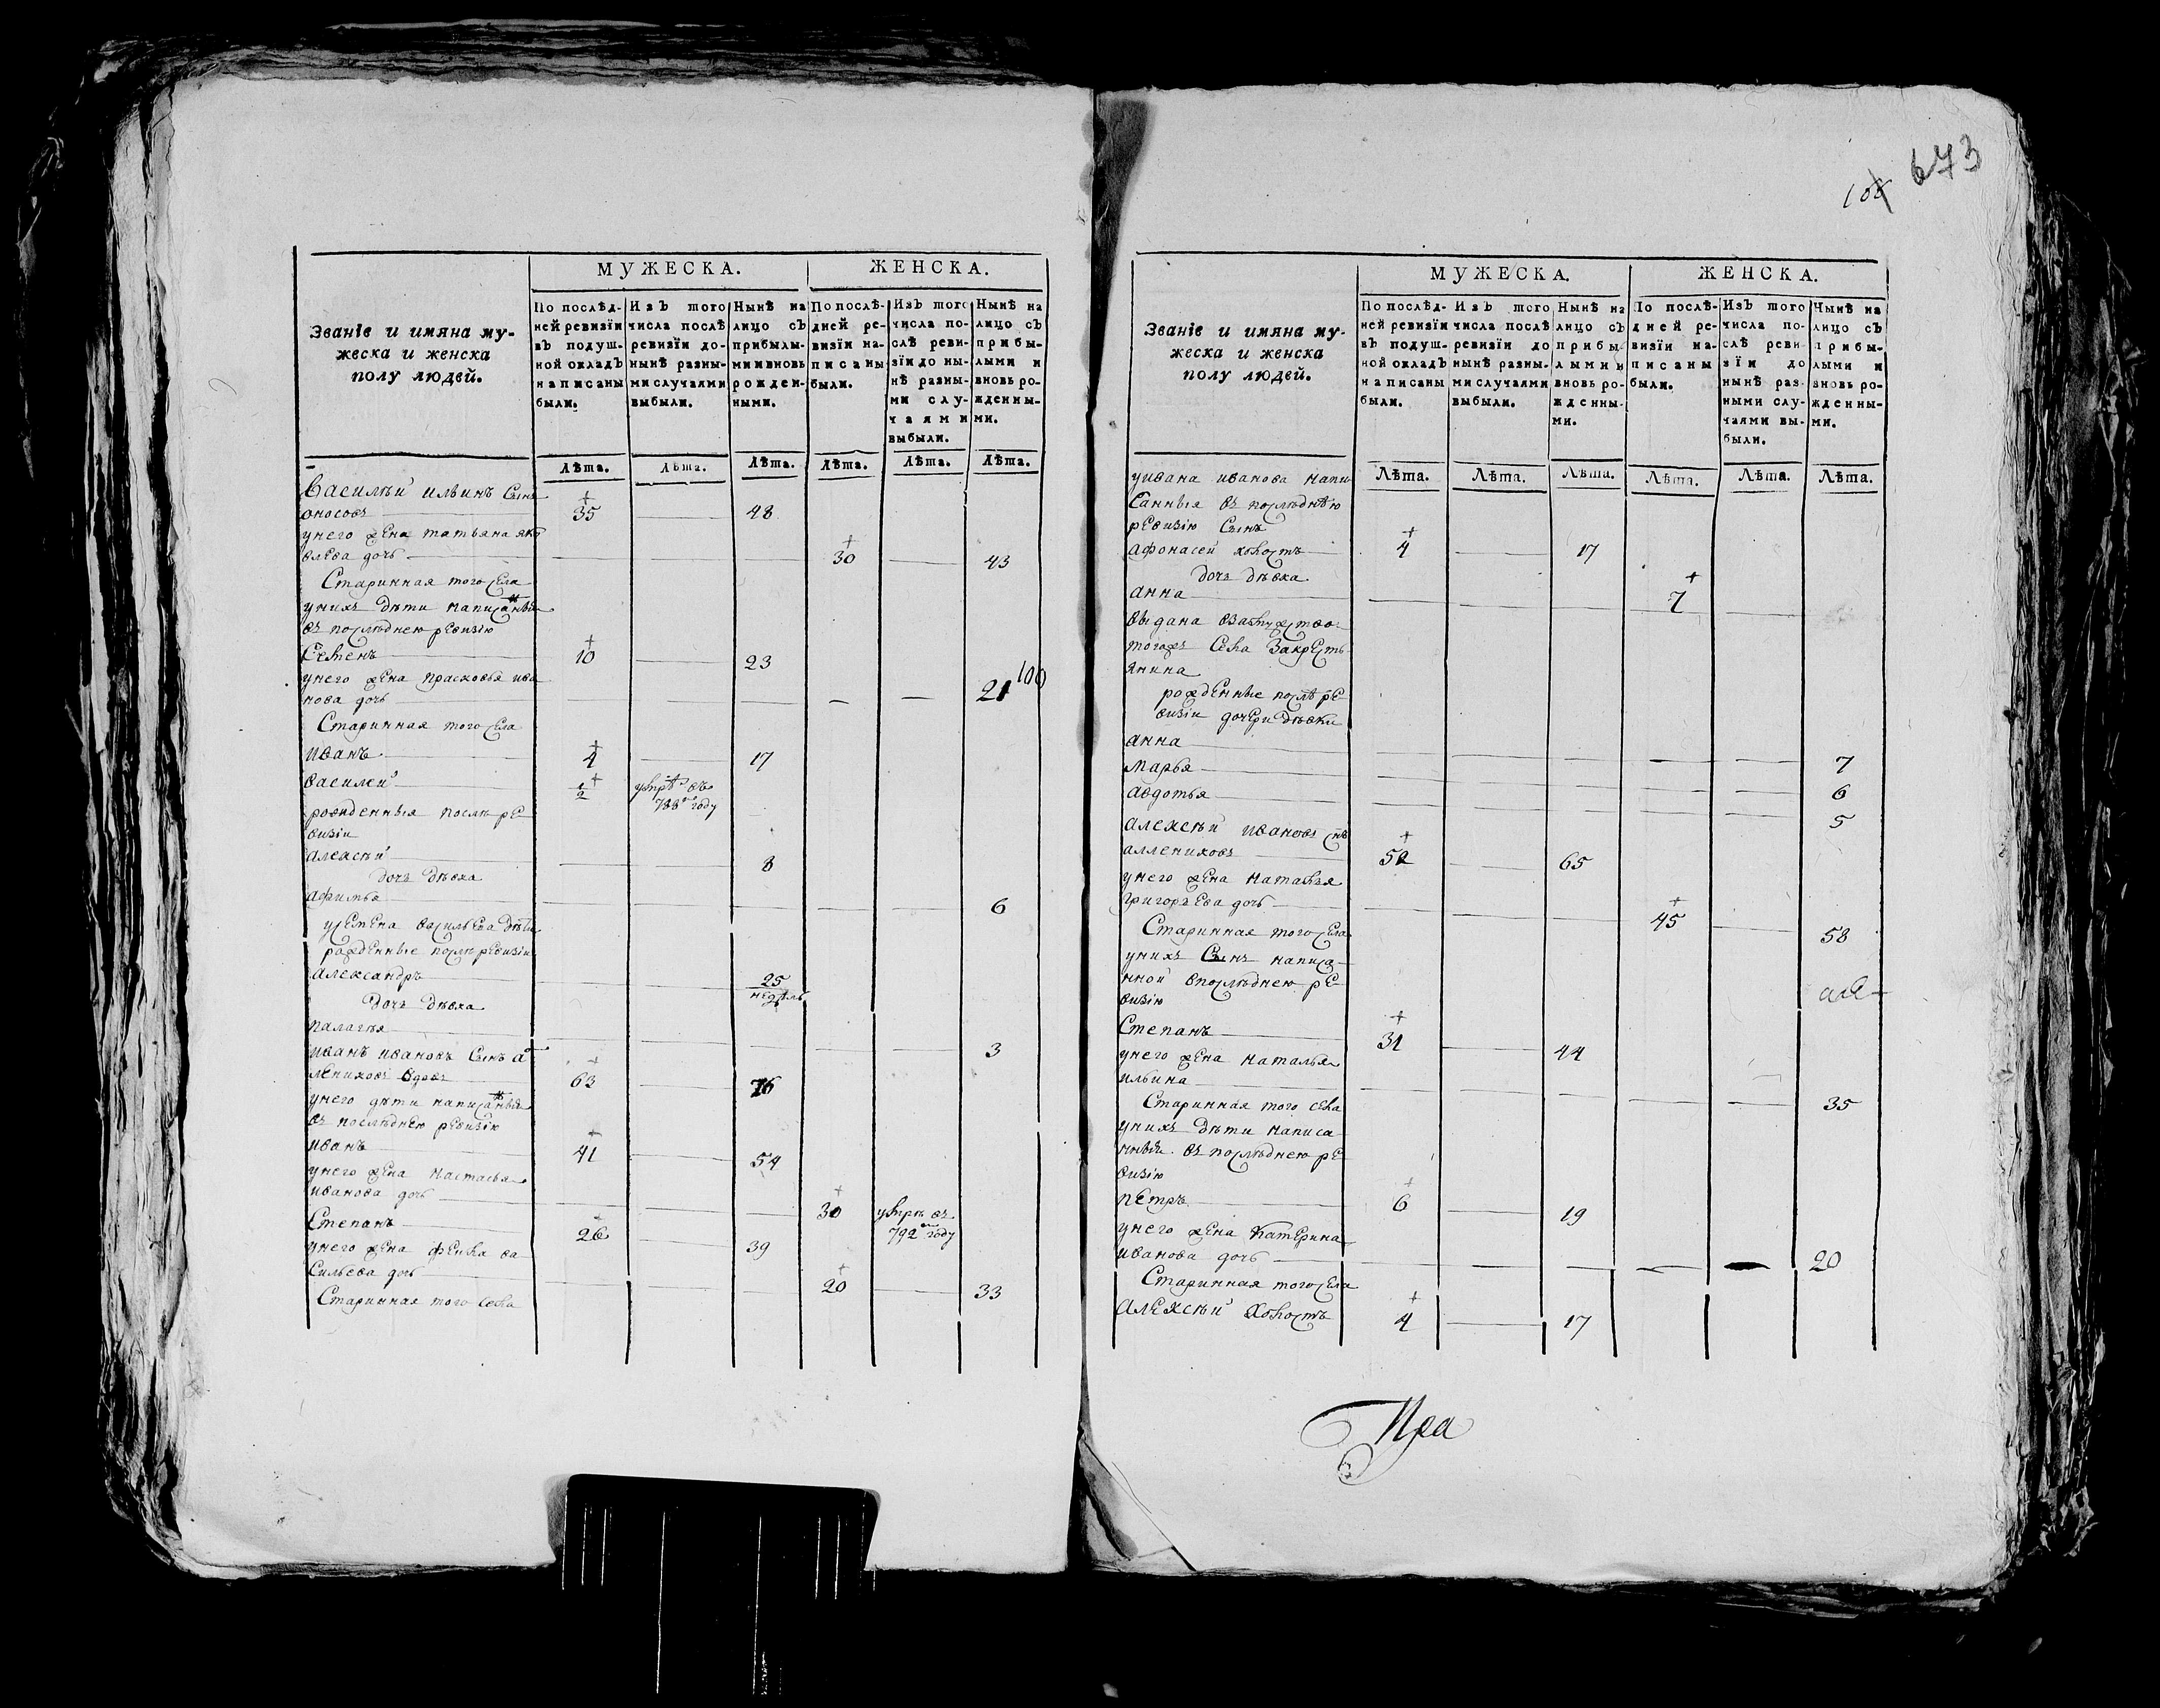 673
МУЖЕСКА. ЖЕНСКА.
Званіе и имяна му-
жеска и женска
полу людей.
По послѣд-
ней ревизіи
въ подуш-
ной окладъ
написаны
были.
Изъ того
числа послѣ
ревизіи до-
нынѣ разны-
ми случаями
выбыли.
Нынѣ на
лицо съ
прибылы-
ми и вновь
рожден-
ными.
По послѣ-
дней ре-
визіи на-
писаны
были.
Изъ того
числа по-
слѣ реви-
зіи до ны-
нѣ разны-
ми слу-
чаями
выбыли.
Нынѣ на
лицо съ
прибы-
лыми и
вновь ро-
жденны-
ми.
Лѣта. Лѣта. Лѣта. Лѣта. Лѣта. Лѣта.
Василѣй ильинъ Сынъ
оносовъ 35 48
унего жена татьяна яко
влева дочь 30 43
Старинная того села
унихъ дѣти написанныя
въ послѣднею ревизію
Семенъ 10 23
унего жена прасковья ива
нова дочь 21 100
Старинная того села
иванъ 4 17
василей 1/2 умре въ
788 году
рожденныя послѣ ре
визіи
алексѣй 8
дочь дѣвка
афимья 6
усемена васильева дѣти
рожденные послѣ ревизіи
александръ 25
недѣль
дочь дѣвка
палагѣя 3
иванъ ивановъ Сынъ а
лениховъ вдовъ 63 76
унего дѣти написанныя
въ послѣднею ревизію
иванъ 41 54
унего жена настасья
иванова дочь 30 умре въ
Степанъ 26 39 792 году
унего жена фекла ва
сильева дочь 20 33
Старинная того села
МУЖЕСКА. ЖЕНСКА.
Званіе и имяна му-
жеска и женска
полу людей.
По послѣд-
ней ревизіи
въ подуш-
ной окладъ
написаны
были.
Изъ того
числа послѣ
ревизіи до
нынѣ разны-
ми случаями
выбыли.
Нынѣ на
лицо съ
прибы
лыми и
вновь ро-
жденны-
ми.
По послѣ-
дней ре-
визіи на-
писаны
были.
Изъ того
числа по-
слѣ реви-
зіи до
нынѣ раз-
ными слу-
чаями вы-
были.
Нынѣ на
лицо съ
прибы-
лыми и
вновь ро-
жденны-
ми.
Лѣта. Лѣта. Лѣта. Лѣта. Лѣта. Лѣта.
уивана иванова напи
санныя въ послѣднѣю
ревизію Сынъ
афонасей холостъ 4 17
дочь дѣвка
анна 7
выдана взамужство
тогожъ села закресть
янина
рожденные послѣ ре
визіи дочери дѣвки
анна 7
марья 6
авдотья 5
алексѣй ивановъ снъ
аллениховъ 52 65
унего жена наталья
григорьева дочь 45 58
Старинная того села
унихъ Сынъ написа
нной впослѣднею ре
визію
Степанъ 31 44
унего жена наталья
ильина 35
Старинная того села
унихъ дѣти написа
нныя въ послѣднею ре
визію
петръ 6 19
унего жена Катерина
иванова дочь 20
Старинная того села
Алексѣй холостъ 4 17